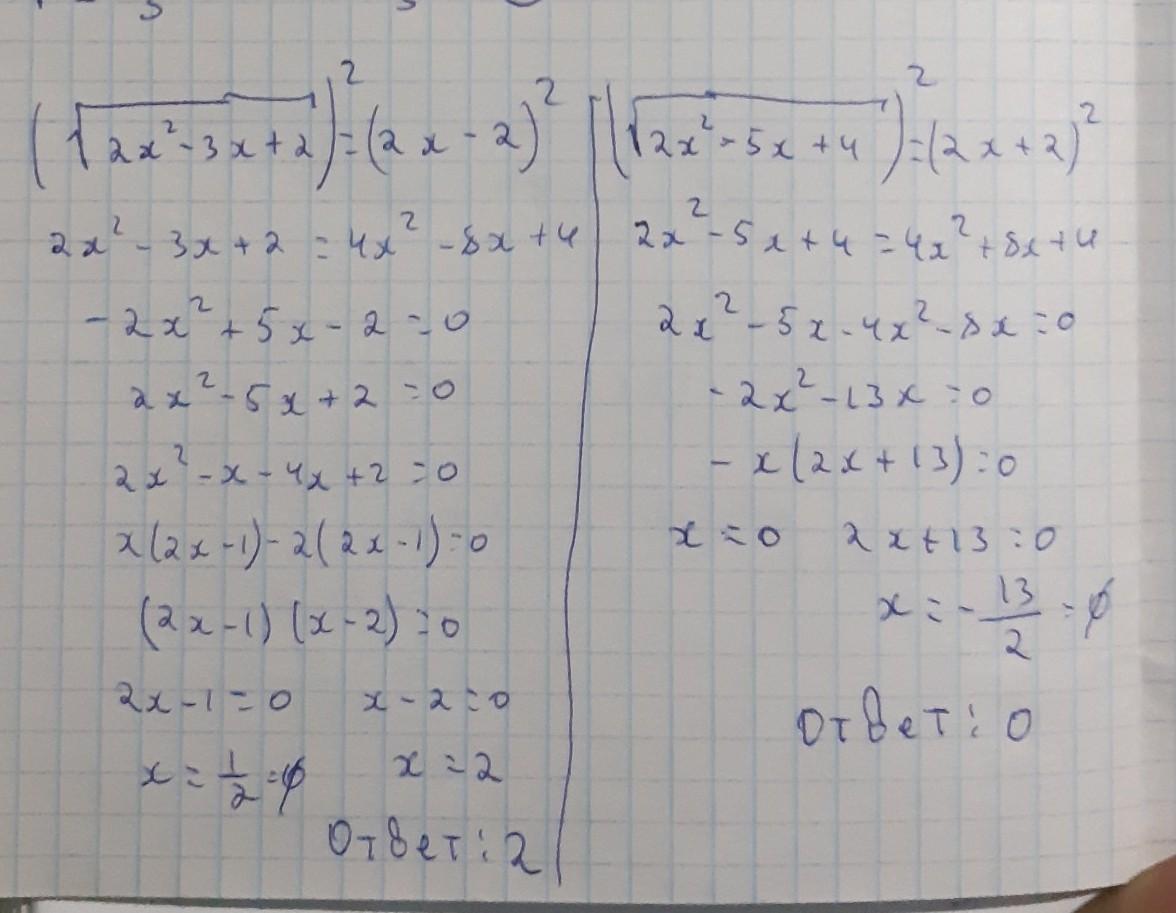 (√(2x² - 3x + 2))² = (2x - 2)²
2x² - 3x + 2 = 4x² - 8x + 4
- 2x² + 5x - 2 = 0
2x² - 5x + 2 = 0
2x² - x - 4x + 2 = 0
x(2x - 1) - 2(2x - 1) = 0
(2x - 1) (x - 2) = 0
2x - 1 = 0 x - 2 = 0
x = 1/2 = ∅ x = 2
Ответ: 2
(√(2x² - 5x + 4))² = (2x + 2)²
2x² - 5x + 4 = 4x² + 8x + 4
2x² - 5x - 4x² - 8x = 0
- 2x² - 13x = 0
- x(2x + 13) = 0
x = 0 2x + 13 = 0
x = - 13/2 = ∅
Ответ: 0